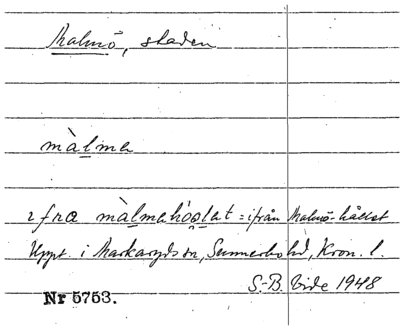 Malmö, staden
màlma
ifra màlmahó̤o̤lat = ifrån Malmö-hållet
Uppt. i Markaryds sn, Sunnerbo hd, Kron. l.
S.-B. Vide 1948
Nr 5753.